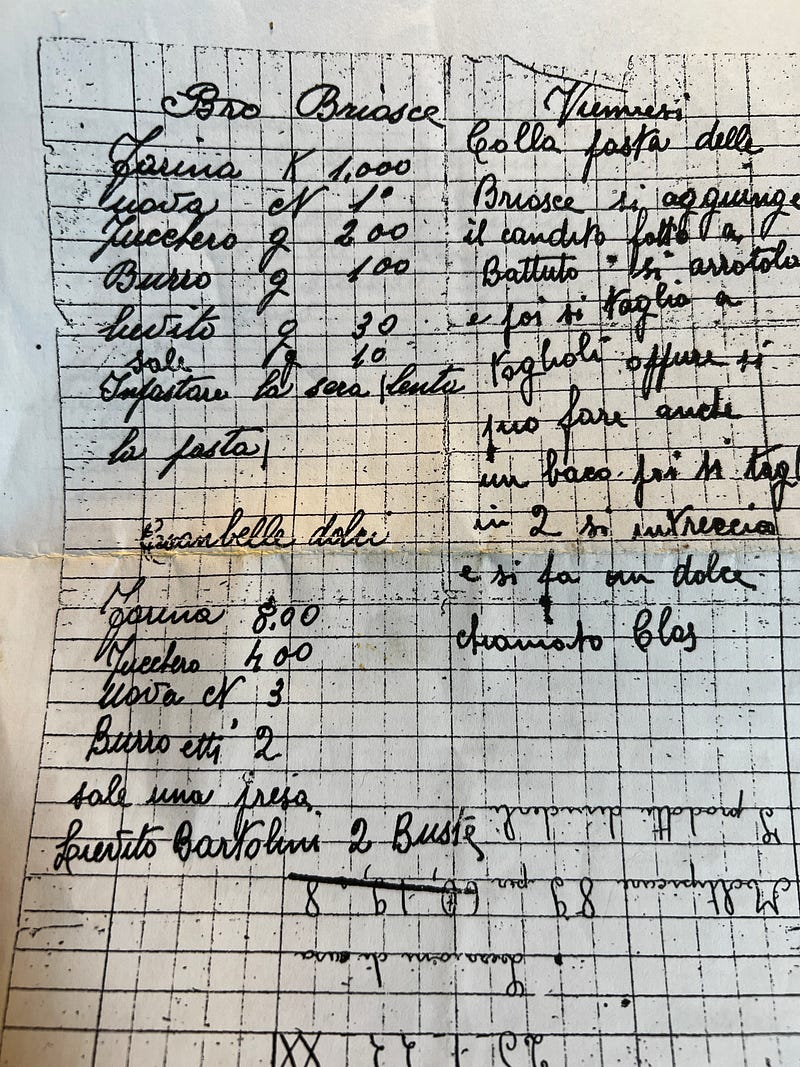 Bro Briosce
Farina K 1,000
uova N 1°
Zucchero g 200
Burro g 100
lievito g 30
sale g 10
Inpastare la sera (lenta
la pasta)
Ciambelle dolci
Farina 8,00
Zucchero 400
uova N 3
Burro etti 2
sale una presa
Lievito Bartolini 2 Buste
Viennesi
Colla pasta delle
Briosce si aggiunge
il candito fatto a
Battuto si arrotola
e poi si taglia a
taglioli oppure si
può fare anche
un baco poi si tagl
in 2 si intreccia
e si fa un dolce
chiamato Clas
XXI
Lezioni di casa
Moltiplicare 89 per 60, 19, 8
I prodotti dividerli